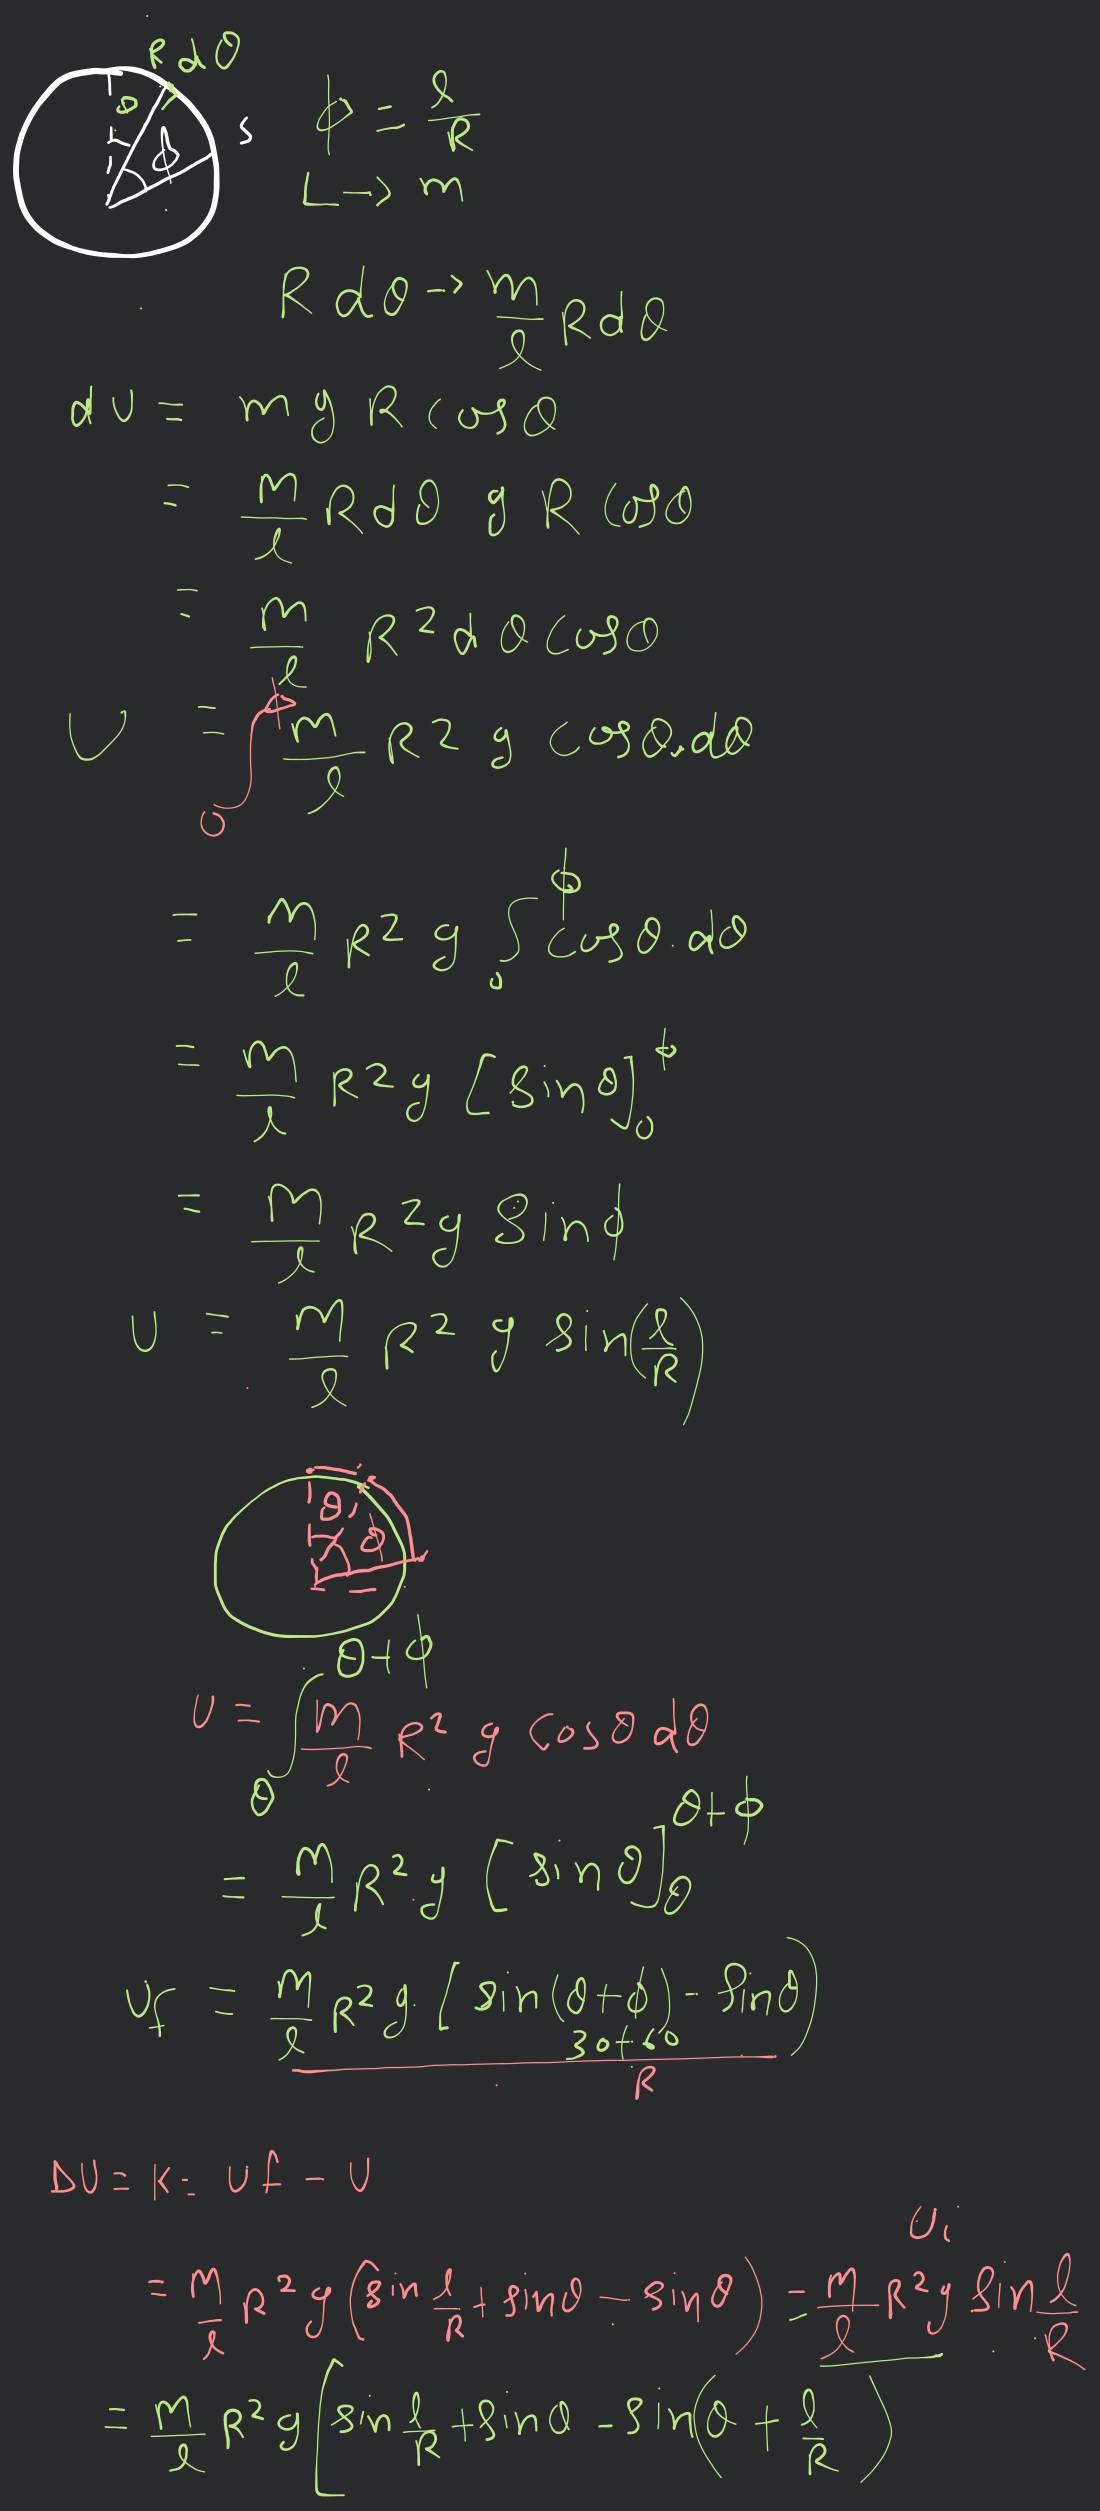 R dθ
θ
ϕ
s
ϕ = l/R
L -> m
R dθ -> m/l R dθ
dU = m g R cosθ
= m/l R dθ g R cosθ
= m/l R² dθ cosθ
U = ∫₀^ϕ m/l R² g cosθ.dθ
= m/l R² g ∫₀^ϕ cosθ.dθ
= m/l R² g [sinθ]₀^ϕ
= m/l R² g sinϕ
U = m/l R² g sin(l/R)
θ
ϕ
U = ∫_θ^(θ+ϕ) m/l R² g cosθ dθ
= m/l R² g [sinθ]_θ^(θ+ϕ)
Uf = m/l R² g [sin(θ+ϕ) - sinθ)
30+60
R
DU = K = Uf - U
Ui
= m/l R² g (sin l/R + sinθ - sinθ) = m/l R² g sin l/R
= m/l R² g [sin l/R + sinθ - sin(θ + l/R)